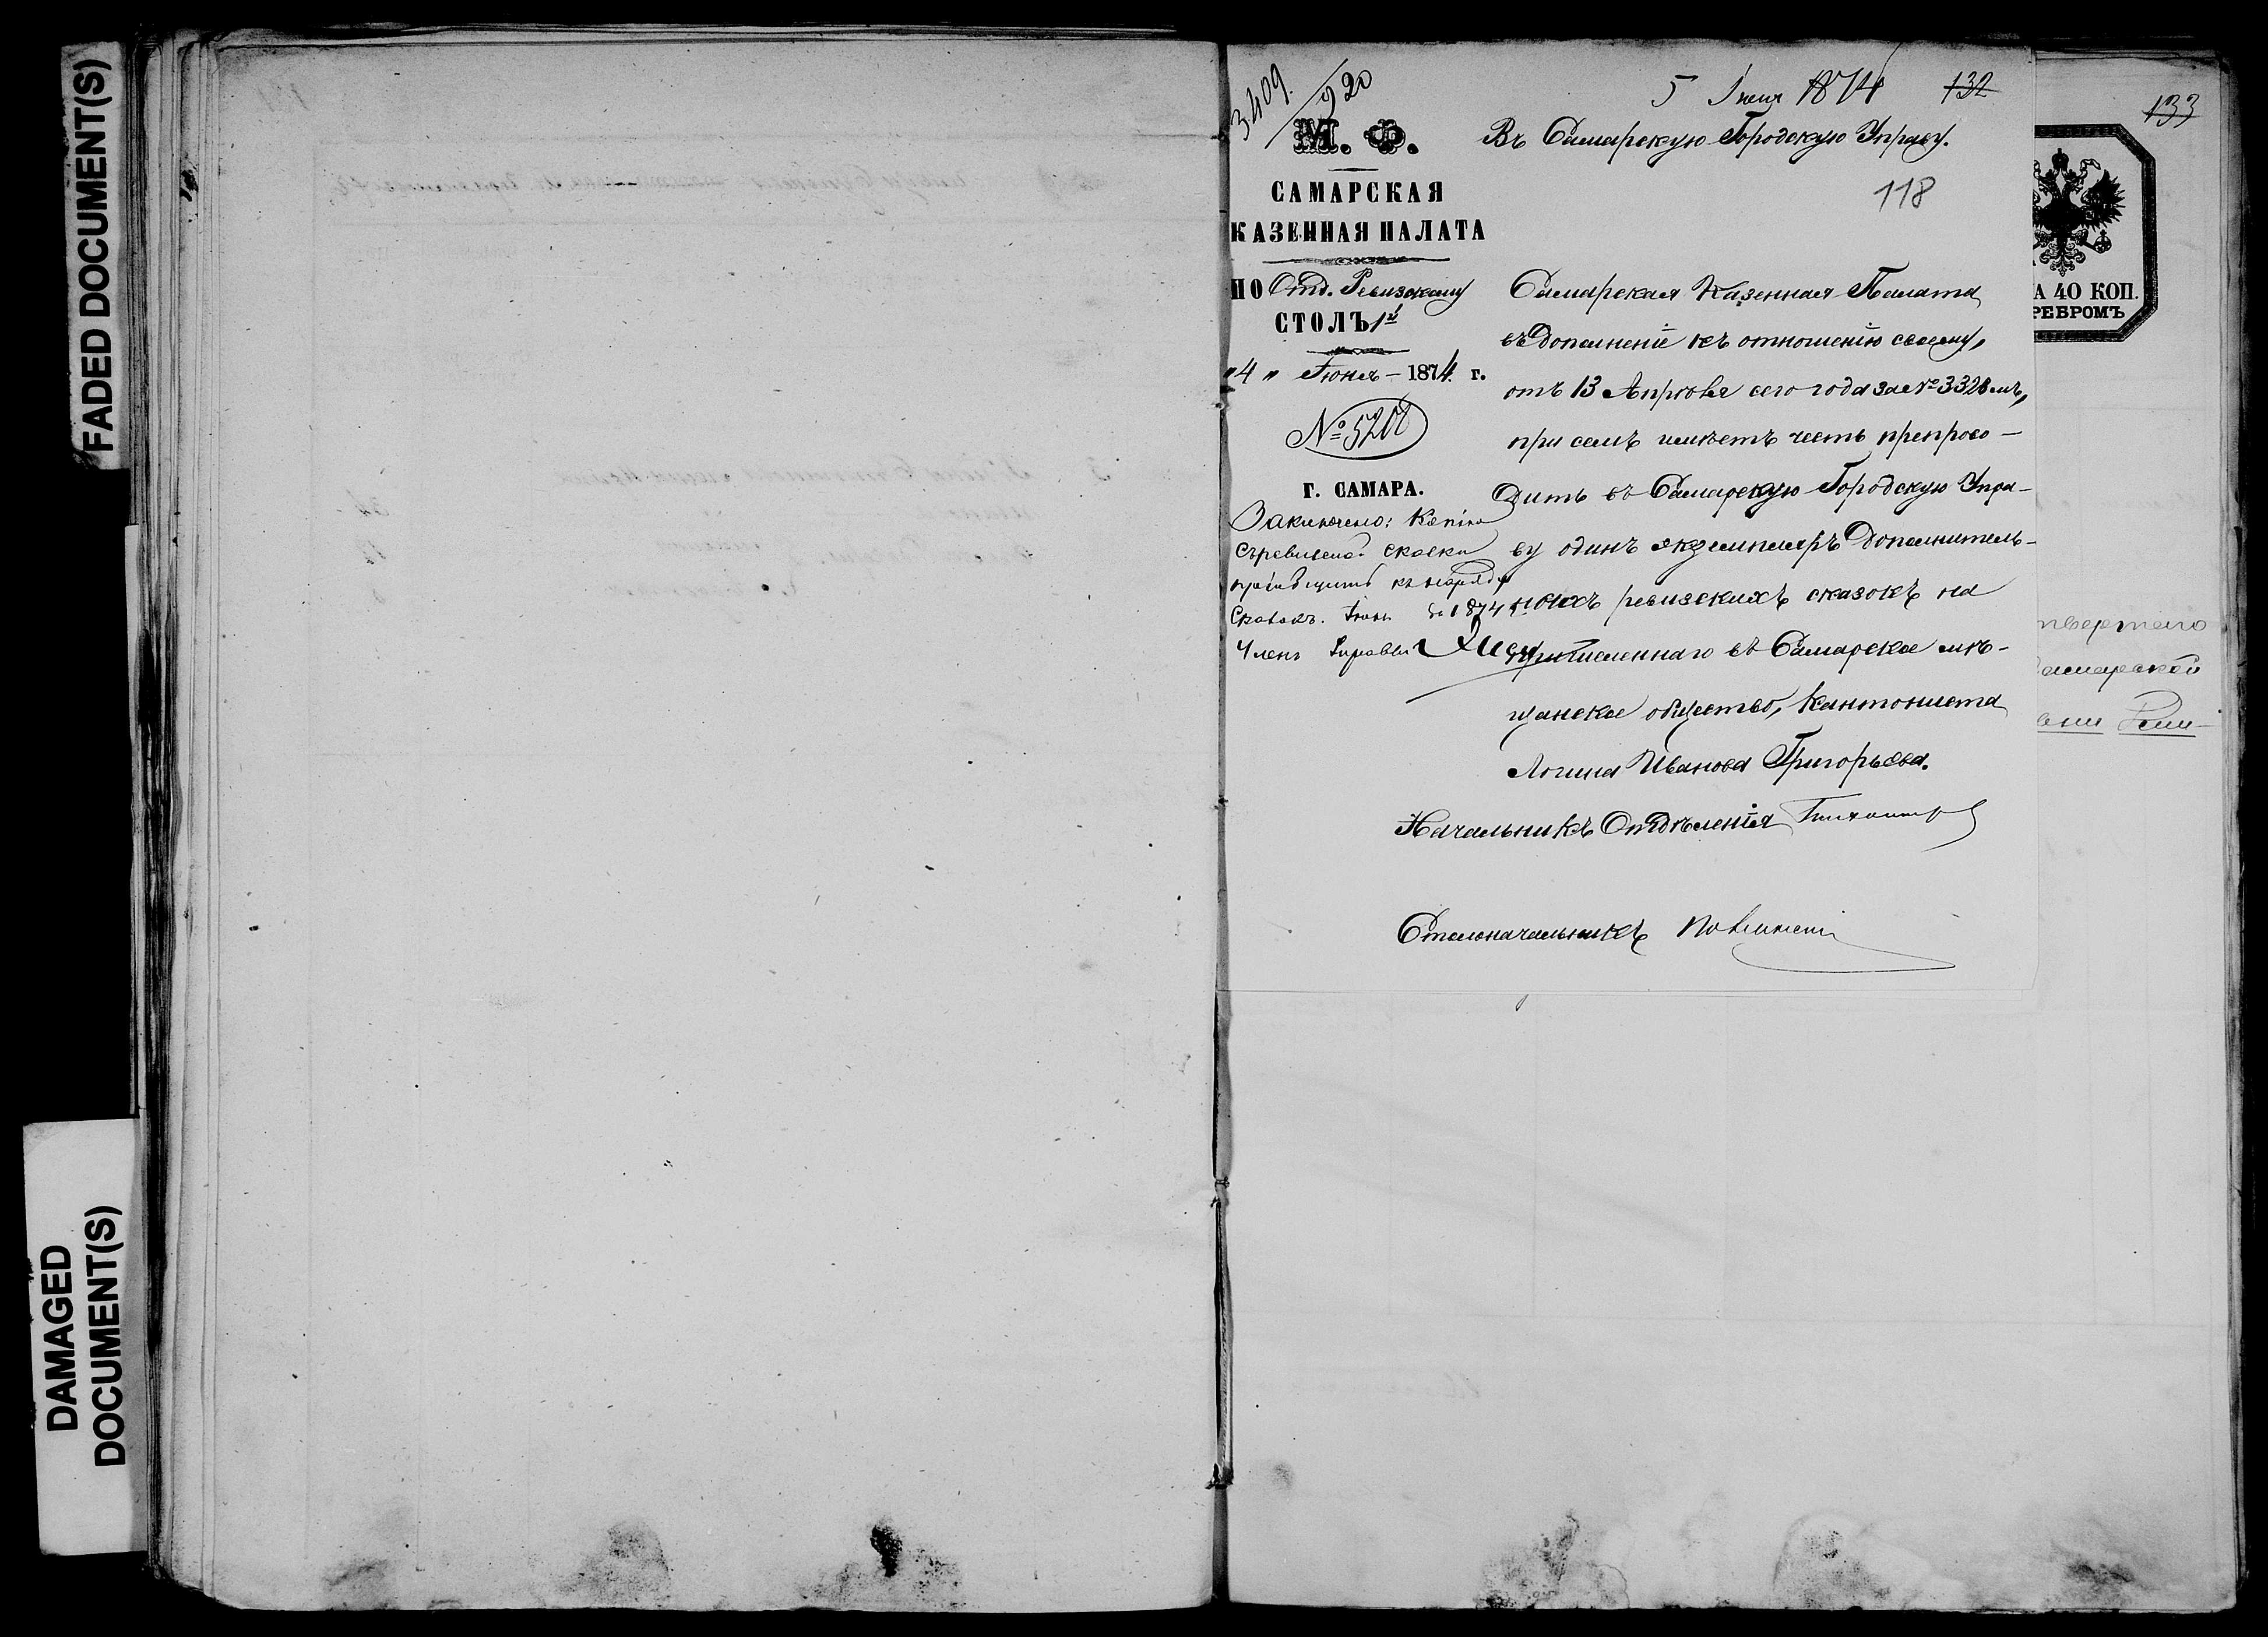 FADED DOCUMENT(S)
DAMAGED
DOCUMENT(S)
3409.
920
5 Іюня 1874
132
133
М. Ф.
САМАРСКАЯ
КАЗЕННАЯ ПАЛАТА
ПО Отд. Ревизскому
СТОЛЪ 1й
„4„ Іюня – 1874 г.
№ 5202
Г. САМАРА.
Заключено: Копію
сказки
къ наряду
1874
Членъ Управы
Въ Самарскую Городскую Управу.
118
Самарская Казенная Палата
въ дополненіе къ отношенію своему,
отъ 13 Апрѣля сего года за № 3328 мъ,
при семъ имѣетъ честь препрово–
дить въ Самарскую Городскую Упра–
ву одинъ экземпляръ дополнитель–
ныхъ ревизскихъ сказокъ на
причисленнаго въ Самарское мѣ–
щанское общество, Кантониста
Логина Иванова Григорьева.
Начальникъ Отдѣленія
Столоначальникъ
А 40 КОП.
РЕБРОМЪ
твертаго
амарской